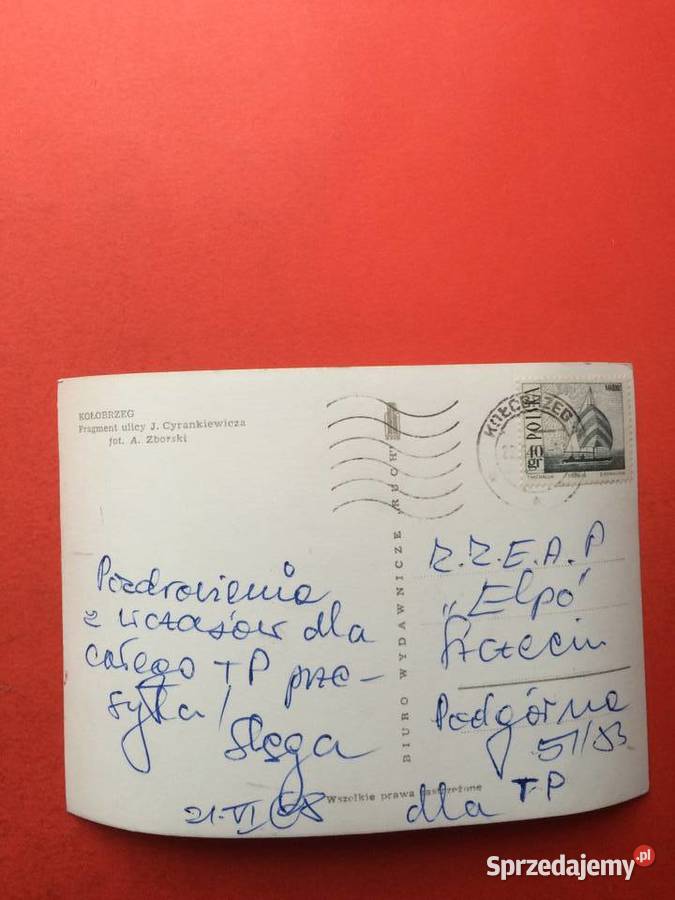 KOŁOBRZEG
Fragment ulicy J. Cyrankiewicza
fot. A. Zborski
BIURO WYDAWNICZE „RUCH”
KOŁOBRZEG
POLSKA
40 gr
Pozdrowienia
z wczasów dla
całego TP prze-
syła/
Slęga
21.VI 68
Z.Z.E.A.P
„Elpo”
Szczecin
Podgórna
51/83
dla TP
Wszelkie prawa zastrzeżone
Sprzedajemy.pl